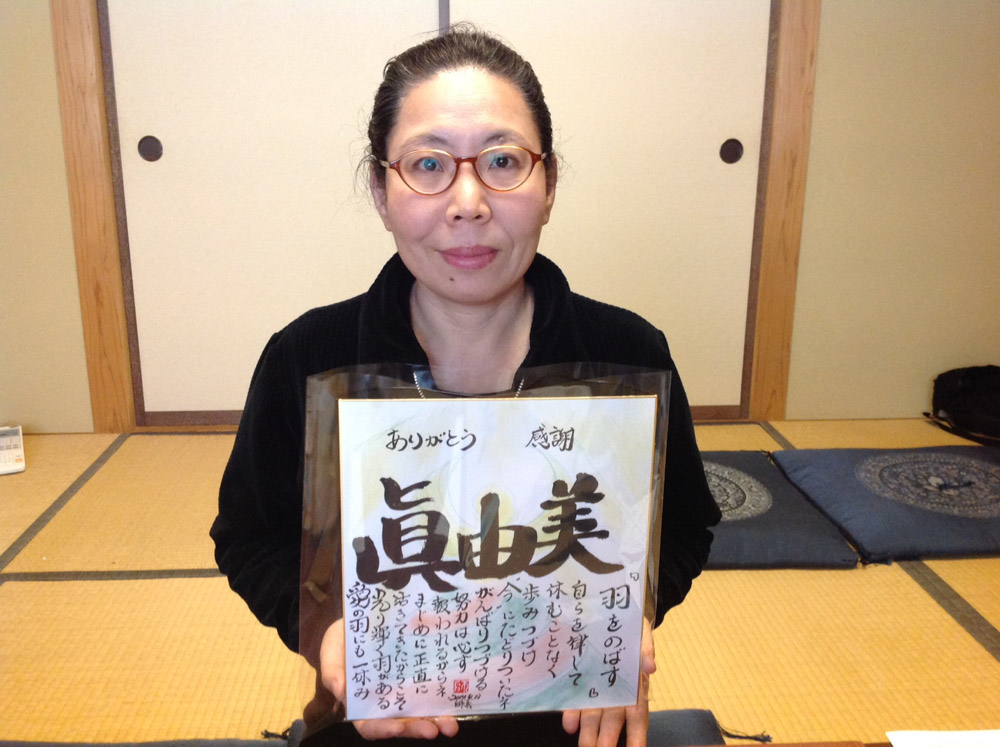 ありがとう 感謝
眞由美
「羽をのばす」
自らを律して
休むことなく
歩みつづけ
今にたどりついたネ
がんばりつづける
努力は必ず
報われるからネ
まじめに正直に
活きてきたからこそ
光り輝く羽がある
愛の羽にも一休み